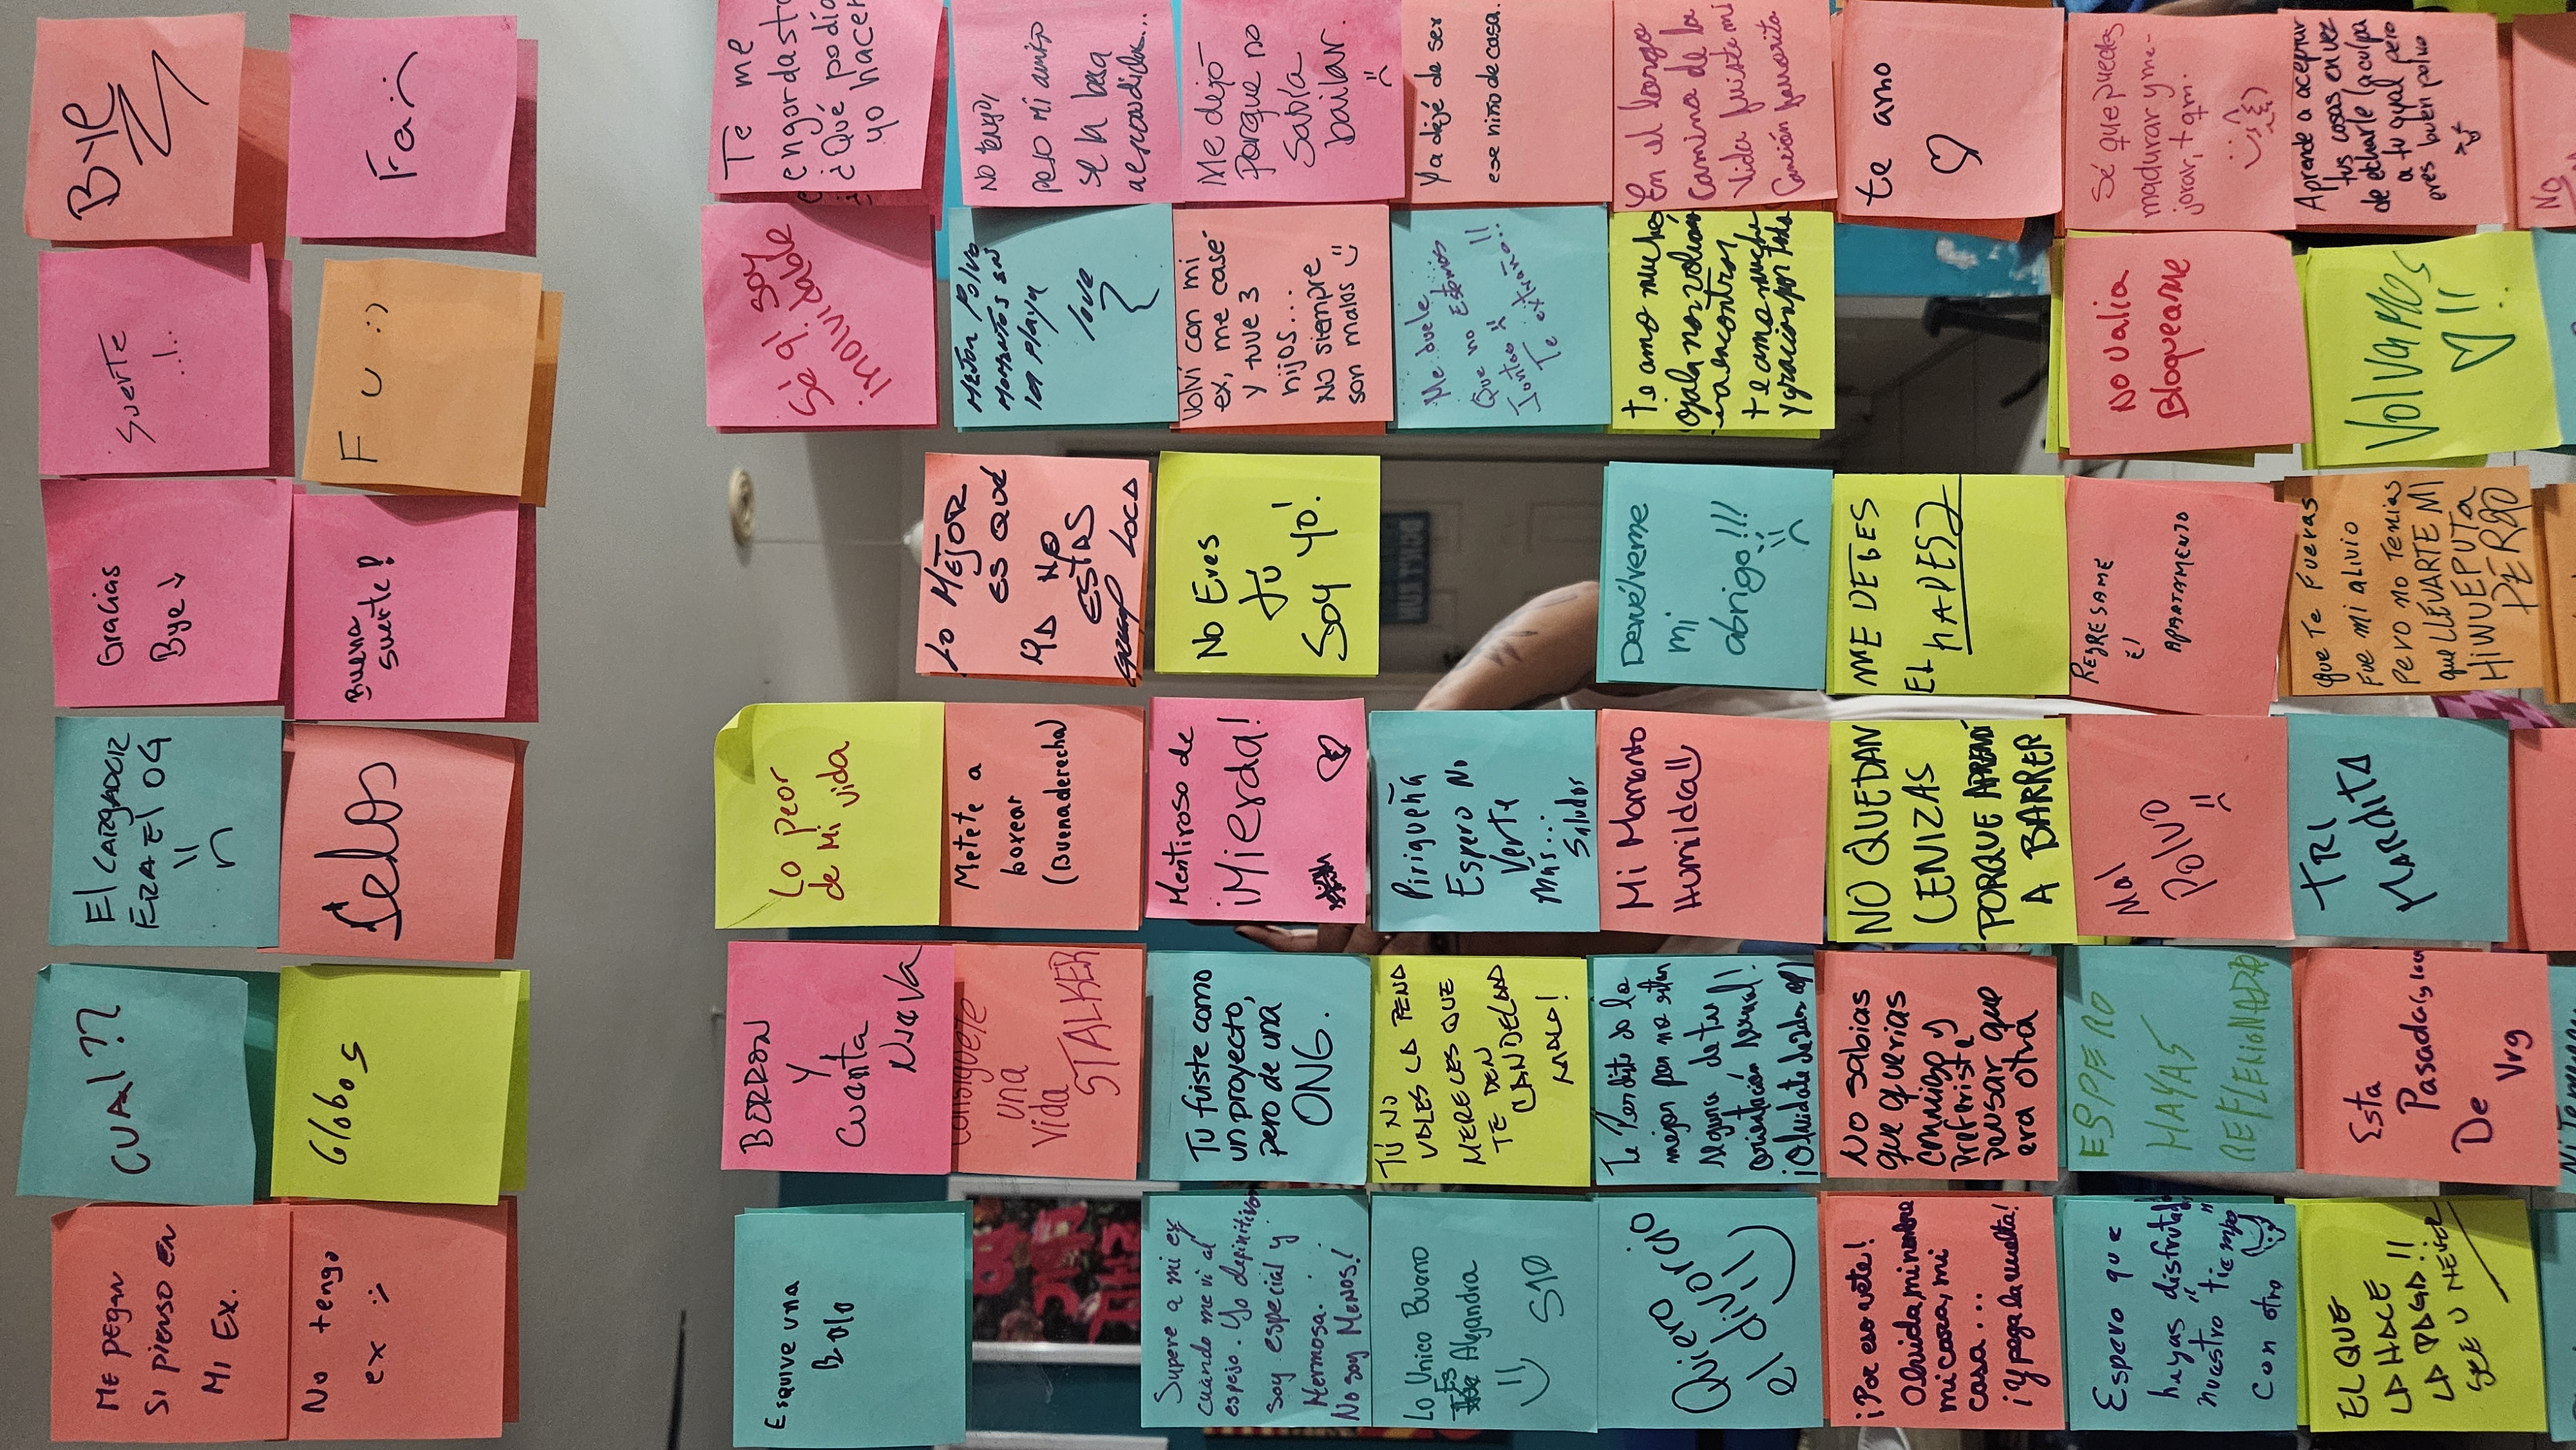 ME PEGAN
SI PIENSO EN
MI EX.
CUAL??
El CARGADOR
ERA El OG
Gracias
Bye
SUERTE
BYE
No tengo
ex :)
Globos
Celos
Buena
suerte!
F U :)
Fa :(
Esquive una
Bala
BORRON
Y
Cuenta
Nueva
Lo peor
de Mi vida
Se q' soy
inolvidable
Te me
engordaste
¿Qué podía
yo hacer
Consiguete
una
Vida
STALKER
Metete a
boxear
(Buena derecha)
Lo MEJOR
ES QUE
YA NO
ESTAS
LOCA
MEJOR POLVO
MOMENTOS EN
LA PLAYA
love
No tengo,
pero mi
se la
Supere a mi ex
cuando me vi al
espejo. Yo definitivamente
soy especial y
Hermosa.
No soy MENOS!
Tu fuiste como
un proyecto,
pero de una
ONG.
Mentiroso de
¡Mierda!
No Eres
tú
Soy yo!
Volví con mi
ex, me casé
y tuve 3
hijos...
No siempre
son malos :)
Me dejó
porque no
sabía
bailar.
:(
Lo Unico Bueno
ES Alejandra
S10
TÚ NO
VALES LA PENA
MERECES QUE
TE DEN
CANDELA
Pirigueña
Espero No
Verte
Mas...
Saludos
Me duele
Que no Estemos
Juntos
Te extraño!!
Ya dejé de ser
ese niño de casa.
Quiero
el divorcio
Te Perdiste de la
mejor por no estar
segura de tu
orientación sexual!
Mi Momento
Humilda
Devuélveme
mi
abrigo!!!
te amo mucho
ojalá nos volvamos
a encontrar,
te amo mucho
y gracias por todo
En el largo
camino de la
vida fuiste mi
canción favorita
¡Por eso vete!
Olvida mi nombre
mi cara, mi
casa...
¡Y pega la vuelta!
No sabias
que querias
conmigo y
preferiste
pensar que
era otra
NO QUEDAN
CENIZAS
PORQUE APRENDÍ
A BARRER
ME DEBES
EL
te amo
Espero que
hayas disfrutado
nuestro "tiempo"
con otro
ESPERO
HAYAS
REFLEXIONADO
Mal
POLVO
REGRESAME
El
APARTAMENTO
No Valia
Bloquearme
Sé que puedes
madurar y me-
jorar, tqm.
EL QUE
LA HACE
LA PAGA!!
Esta
Pasada
De Vrg
TRI
MARDITA
Que Te Fueras
Fue mi alivio
Pero no Tenias
que LLEVARTE MI
HIJUEPUTA
PERRO
VOLVAMOS
Aprende a aceptar
tus cosas en vez
de echarle la culpa
a tu
eres buen polvo